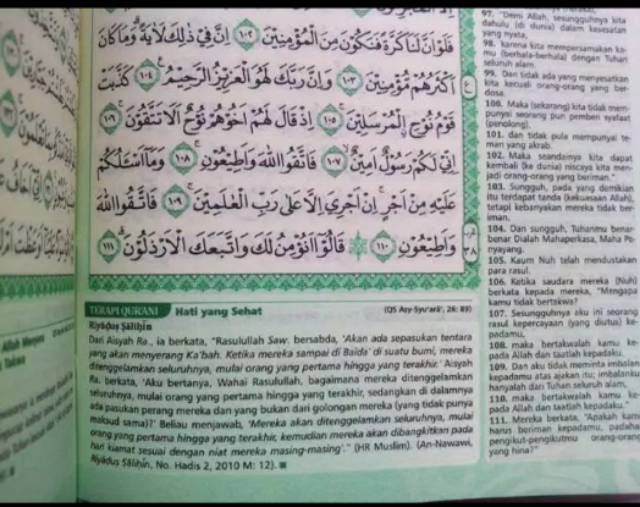 فَلَوْ اَنَّ لَنَا كَرَّةً فَنَكُوْنَ مِنَ الْمُؤْمِنِيْنَ ١٠٢ اِنَّ فِيْ ذٰلِكَ لَاٰيَةً ۗوَمَا كَانَ
اَكْثَرُهُمْ مُّؤْمِنِيْنَ ١٠٣ وَاِنَّ رَبَّكَ لَهُوَ الْعَزِيْزُ الرَّحِيْمُ ١٠٤ كَذَّبَتْ
قَوْمُ نُوْحِ ِۨالْمُرْسَلِيْنَ ١٠٥ اِذْ قَالَ لَهُمْ اَخُوْهُمْ نُوْحٌ اَلَا تَتَّقُوْنَ ١٠٦
اِنِّيْ لَكُمْ رَسُوْلٌ اَمِيْنٌ ١٠٧ فَاتَّقُوا اللّٰهَ وَاَطِيْعُوْنِ ١٠٨ وَمَآ اَسْـَٔلُكُمْ
عَلَيْهِ مِنْ اَجْرٍ اِنْ اَجْرِيَ اِلَّا عَلٰى رَبِّ الْعٰلَمِيْنَ ١٠٩ فَاتَّقُوا اللّٰهَ
وَاَطِيْعُوْنِ ١١٠ قَالُوْٓا اَنُؤْمِنُ لَكَ وَاتَّبَعَكَ الْاَرْذَلُوْنَ ١١١
TERAPI QUR'ANI Hati yang Sehat (QS Asy-Syu'arā', 26: 89)
Riyāḍuṣ Ṣāliḥīn
Dari Aisyah Ra., ia berkata, "Rasulullah Saw. bersabda, 'Akan ada sepasukan tentara
yang akan menyerang Ka'bah. Ketika mereka sampai di Baida' di suatu bumi, mereka
ditenggelamkan seluruhnya, mulai orang yang pertama hingga yang terakhir.' Aisyah
Ra. berkata, 'Aku bertanya, Wahai Rasulullah, bagaimana mereka ditenggelamkan
seluruhnya, mulai orang yang pertama hingga yang terakhir, sedangkan di dalamnya
ada pasukan perang mereka dan yang bukan dari golongan mereka (yang tidak punya
maksud sama)?' Beliau menjawab, 'Mereka akan ditenggelamkan seluruhnya, mulai
orang yang pertama hingga yang terakhir, kemudian mereka akan dibangkitkan pada
hari kiamat sesuai dengan niat mereka masing-masing'." (HR Muslim). (An-Nawawi,
Riyāḍuṣ Ṣāliḥīn, No. Hadis 2, 2010 M: 12).
97. "Demi Allah, sesungguhnya kita
dahulu (di dunia) dalam kesesatan
yang nyata,
98. karena kita mempersamakan ka-
mu (berhala-berhala) dengan Tuhan
seluruh alam.
99. Dan tidak ada yang menyesatkan
kita kecuali orang-orang yang ber-
dosa.
100. Maka (sekarang) kita tidak mem-
punyai seorang pun pemberi syafaat
(penolong),
101. dan tidak pula mempunyai te-
man yang akrab.
102. Maka seandainya kita dapat
kembali (ke dunia) niscaya kita men-
jadi orang-orang yang beriman."
103. Sungguh, pada yang demikian
itu terdapat tanda (kekuasaan Allah),
tetapi kebanyakan mereka tidak ber-
iman.
104. Dan sungguh, Tuhanmu benar-
benar Dialah Mahaperkasa, Maha Pe-
nyayang.
105. Kaum Nuh telah mendustakan
para rasul.
106. Ketika saudara mereka (Nuh)
berkata kepada mereka, "Mengapa
kamu tidak bertakwa?
107. Sesungguhnya aku ini seorang
rasul kepercayaan (yang diutus) ke-
padamu,
108. maka bertakwalah kamu ke-
pada Allah dan taatlah kepadaku.
109. Dan aku tidak meminta imbalan
kepadamu atas ajakan itu; imbalanku
hanyalah dari Tuhan seluruh alam,
110. maka bertakwalah kamu ke-
pada Allah dan taatlah kepadaku."
111. Mereka berkata, "Apakah kami
harus beriman kepadamu, padahal
pengikut-pengikutmu orang-orang
yang hina?"